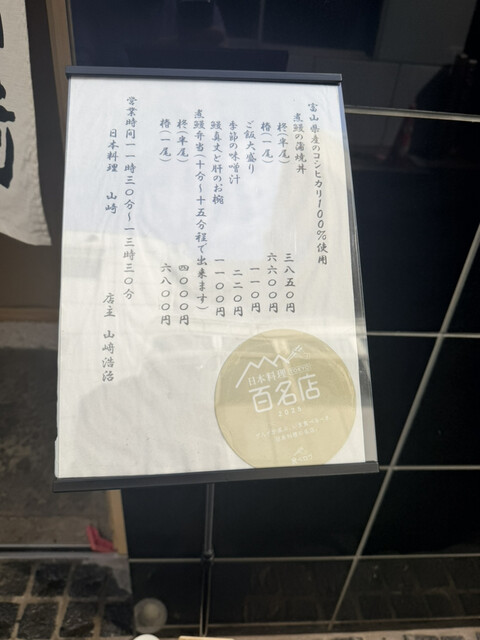 富山県産のコシヒカリ100%使用
煮鰻の蒲焼丼
柊(半尾) 三八五〇円
椿(一尾) 六六〇〇円
ご飯大盛り 一一〇円
季節の味噌汁 二二〇円
鰻真丈と肝のお椀 一一〇〇円
煮鰻弁当(十分〜十五分程で出来ます)
柊(半尾) 四〇〇〇円
椿(一尾) 六八〇〇円
営業時間一一時三〇分〜一三時三〇分
日本料理 山崎 店主 山崎浩治
日本料理
百名店